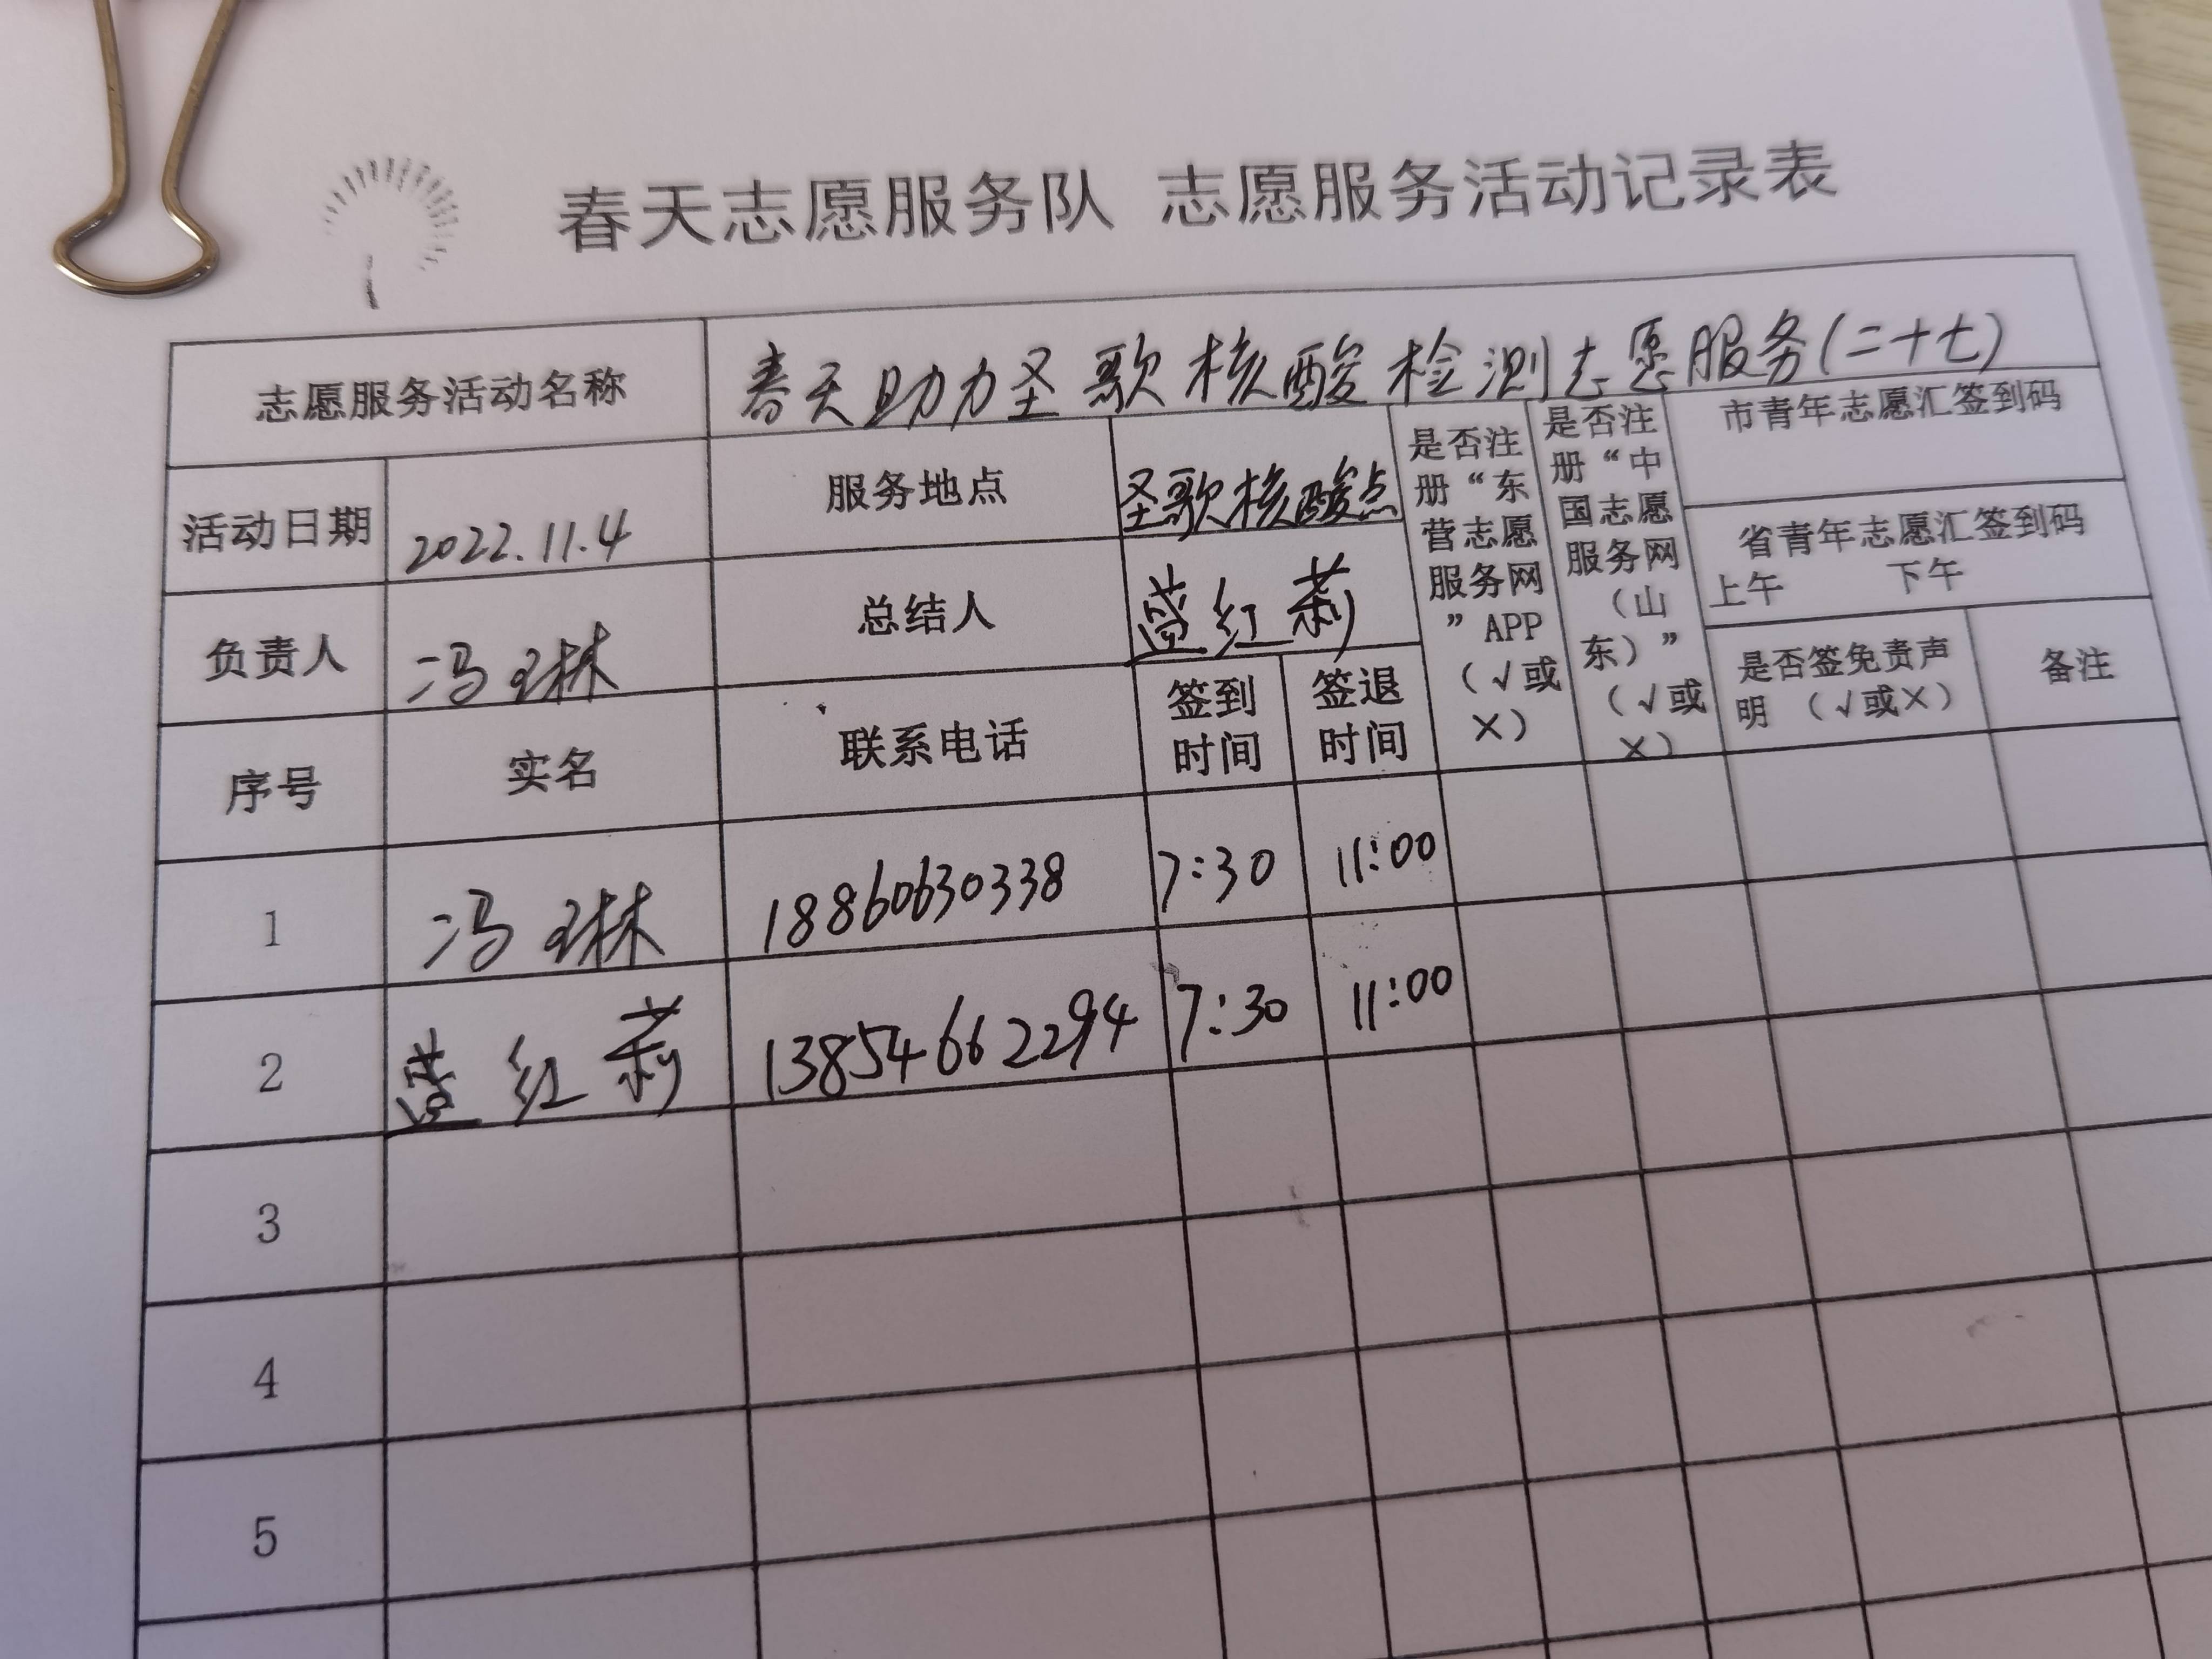 春天志愿服务队 志愿服务活动记录表
志愿服务活动名称 春天助力圣歌核酸检测志愿服务(二十七)
活动日期 2022.11.4 服务地点 圣歌核酸点
负责人 冯琳 总结人 红莉
是否注册“东营志愿服务网”APP（√或×）
是否注册“中国志愿服务网（山东）”（√或×）
市青年志愿汇签到码
省青年志愿汇签到码
上午 下午
是否签免责声明（√或×） 备注
序号 实名 联系电话 签到时间 签退时间
1 冯琳 18860630338 7:30 11:00
2 红莉 13854662294 7:30 11:00
3
4
5